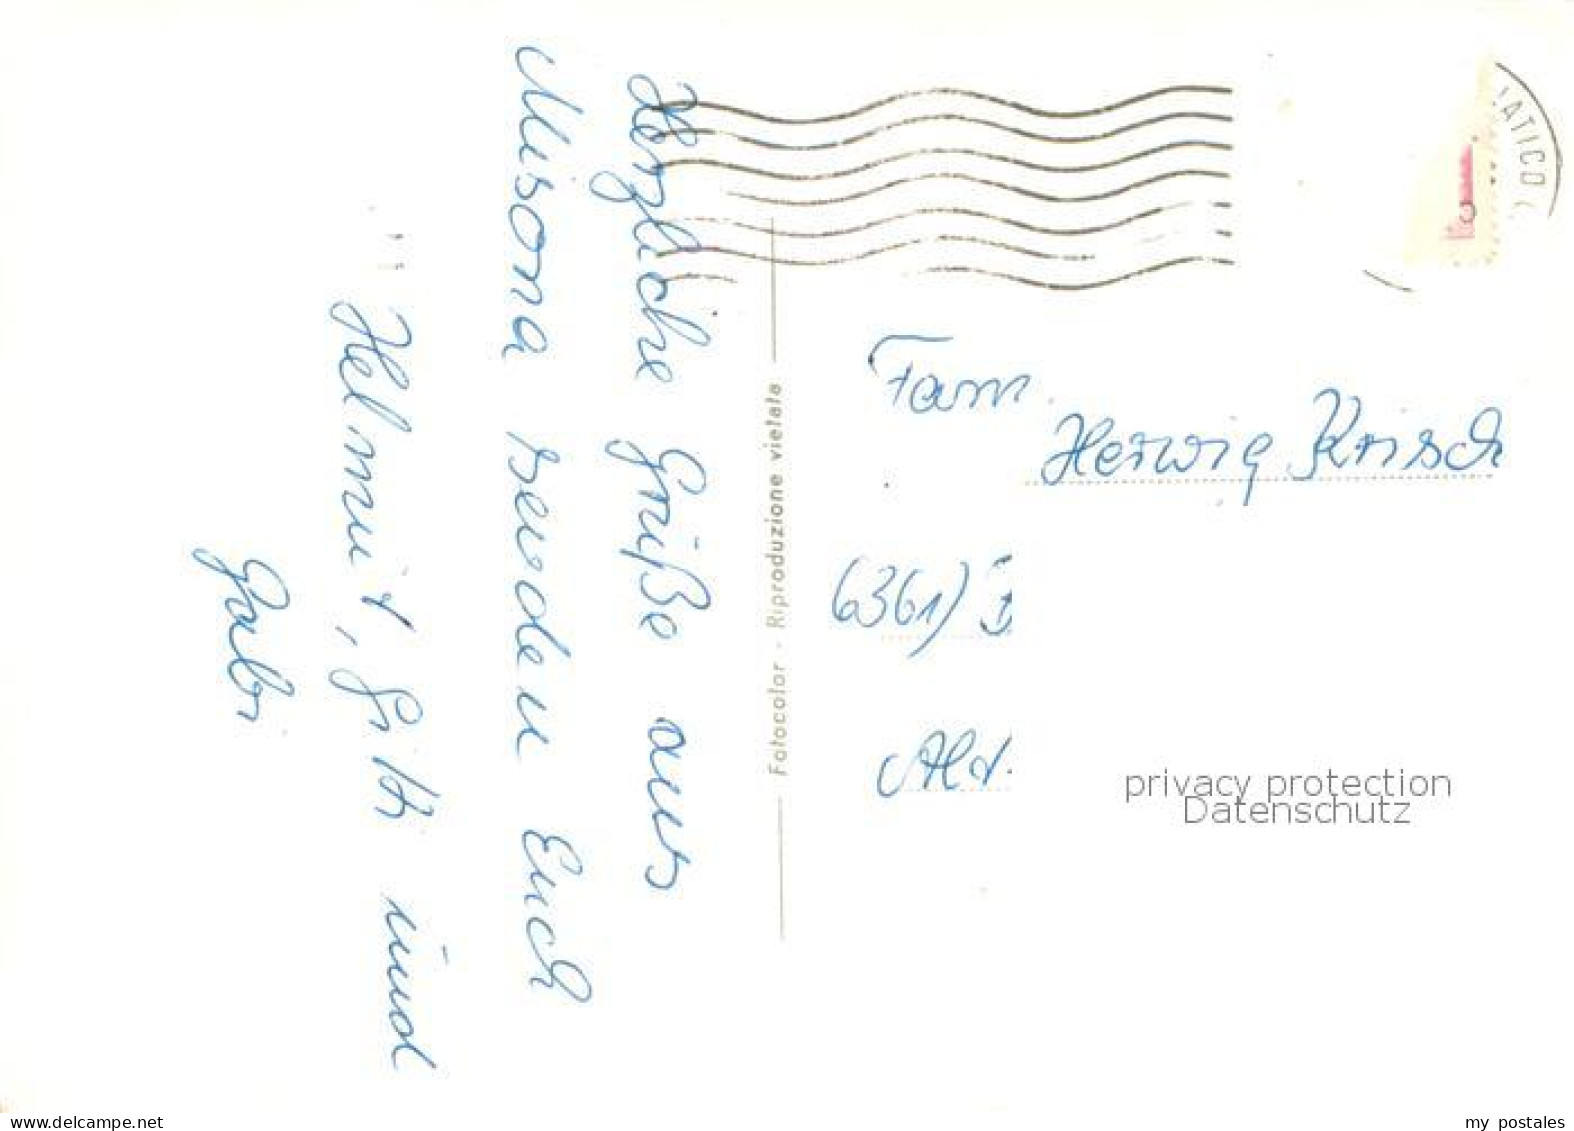 Herzliche Grüße aus
Misona senden Euch
Helmut, Gitti und
Gabi
Fotocolor - Riproduzione vietata
IATICO
Fam
Herwig Krisch
6361)
privacy protection
Datenschutz
www.delcampe.net
my postales